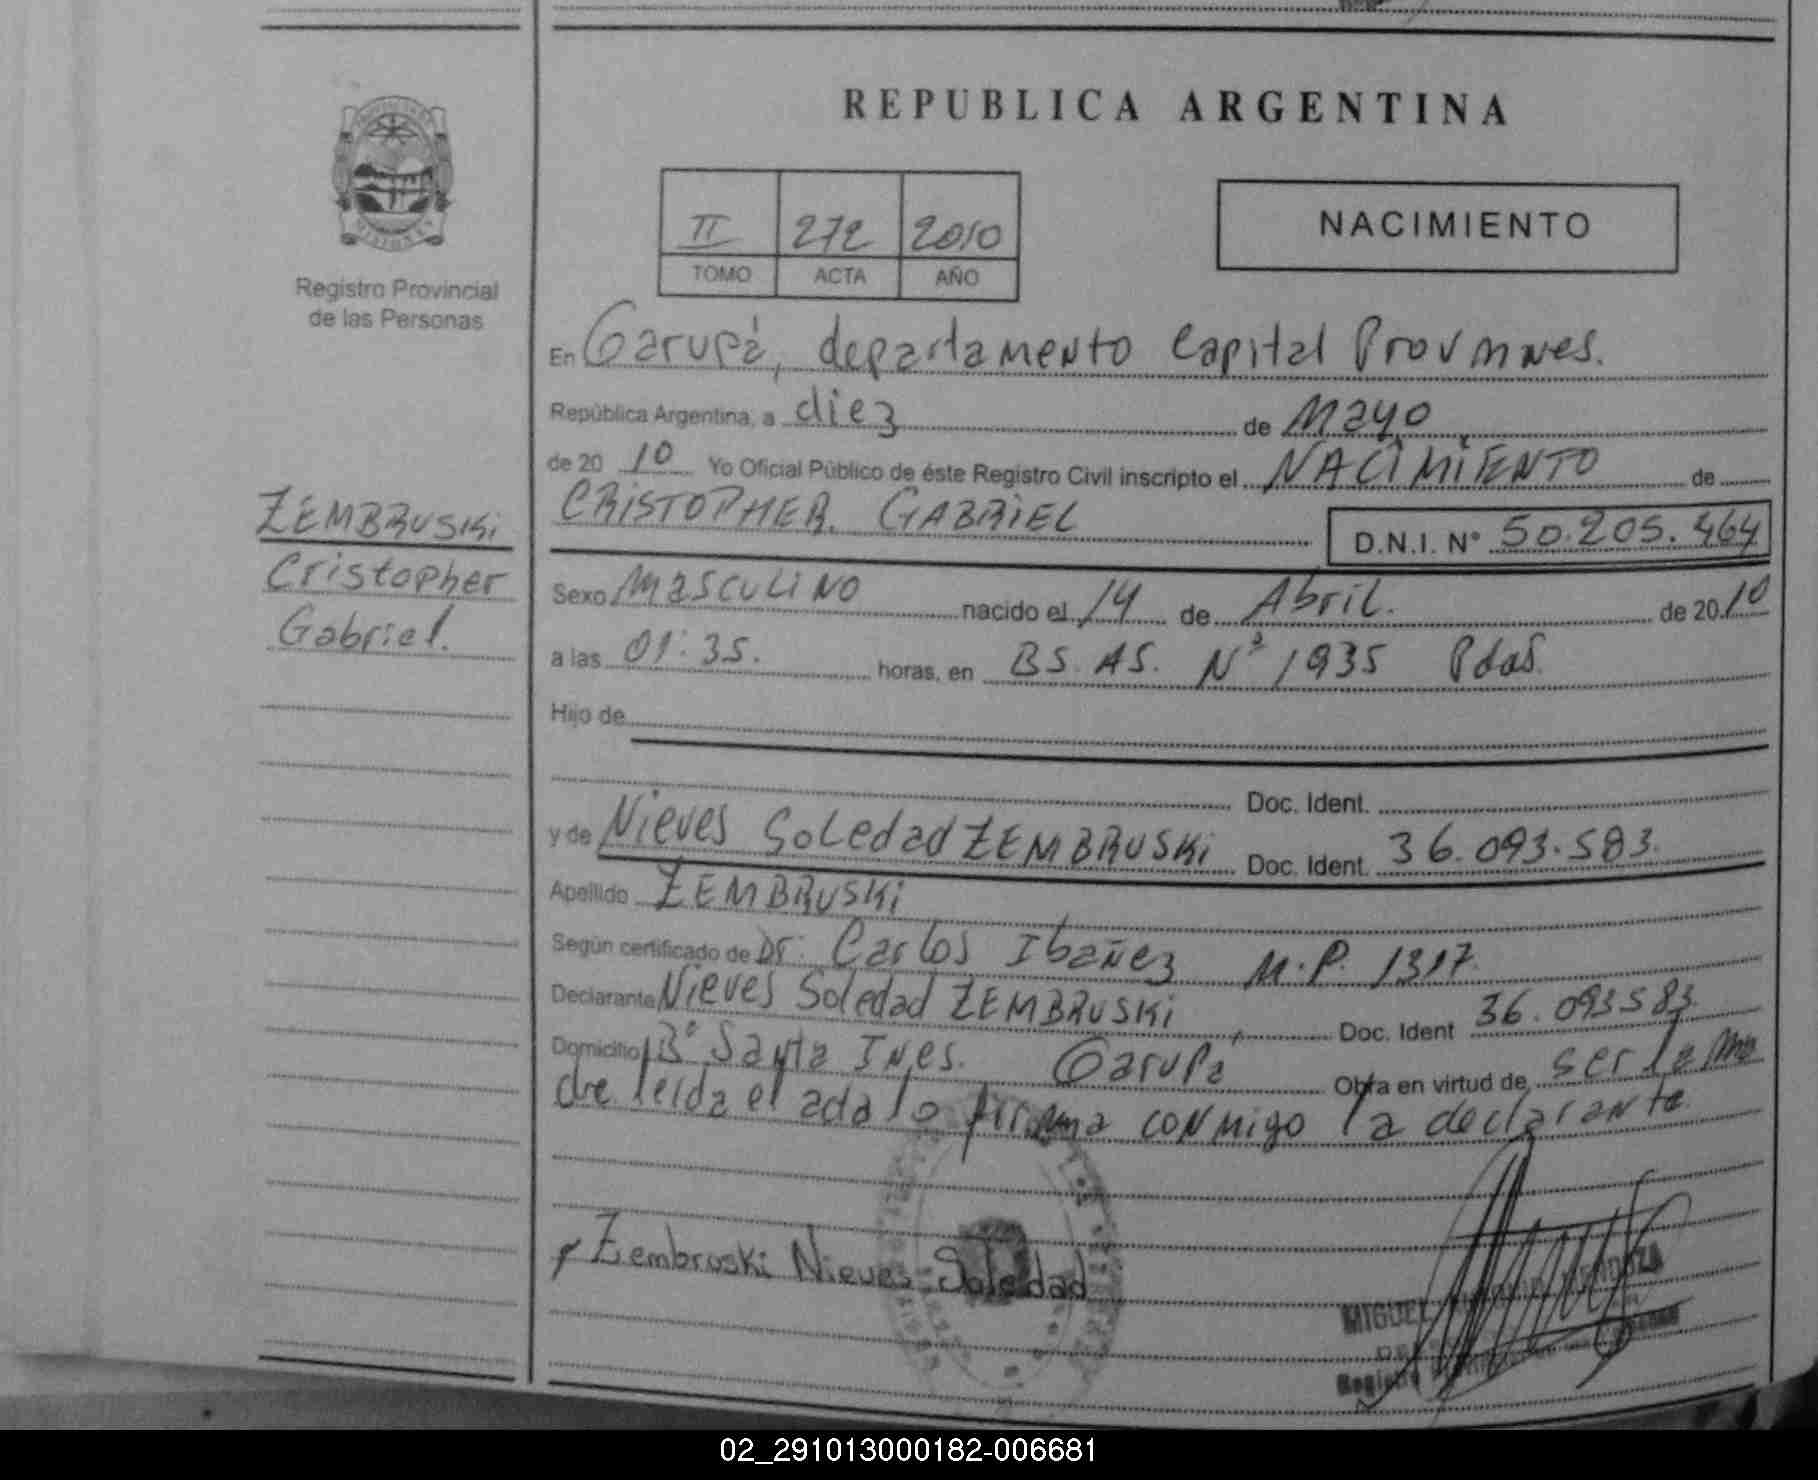 REPUBLICA ARGENTINA
II 272 2010
TOMO ACTA AÑO
NACIMIENTO
MISIONES
Registro Provincial
de las Personas
ZEMBRUSKi
Cristopher
Gabriel.
En Garupá, departamento Capital Prov mnes.
República Argentina, a diez de Mayo
de 20 10 Yo Oficial Público de éste Registro Civil inscripto el NACIMIENTO de
CRISTOPHER GABRIEL D.N.I. N° 50.205.464
Sexo masculino nacido el 14 de Abril. de 20 10
a las 01:35. horas, en BS. AS. N° 1935 Pdas.
Hijo de
Doc. Ident.
y de Nieves Soledad ZEMBRUSKi Doc. Ident. 36.093.583.
Apellido ZEMBRUSKi
Según certificado de Dr. Carlos Ibañez M.P. 1317.
Declarante Nieves Soledad ZEMBRUSKi Doc. Ident 36.093583
Domicilio B° Santa Ines. Garupá Obra en virtud de ser la Ma
dre leida el acta lo firma conmigo la declarante
Zembruski Nieves Soledad
MIGUEL MENDOZA
Registro
02_291013000182-006681